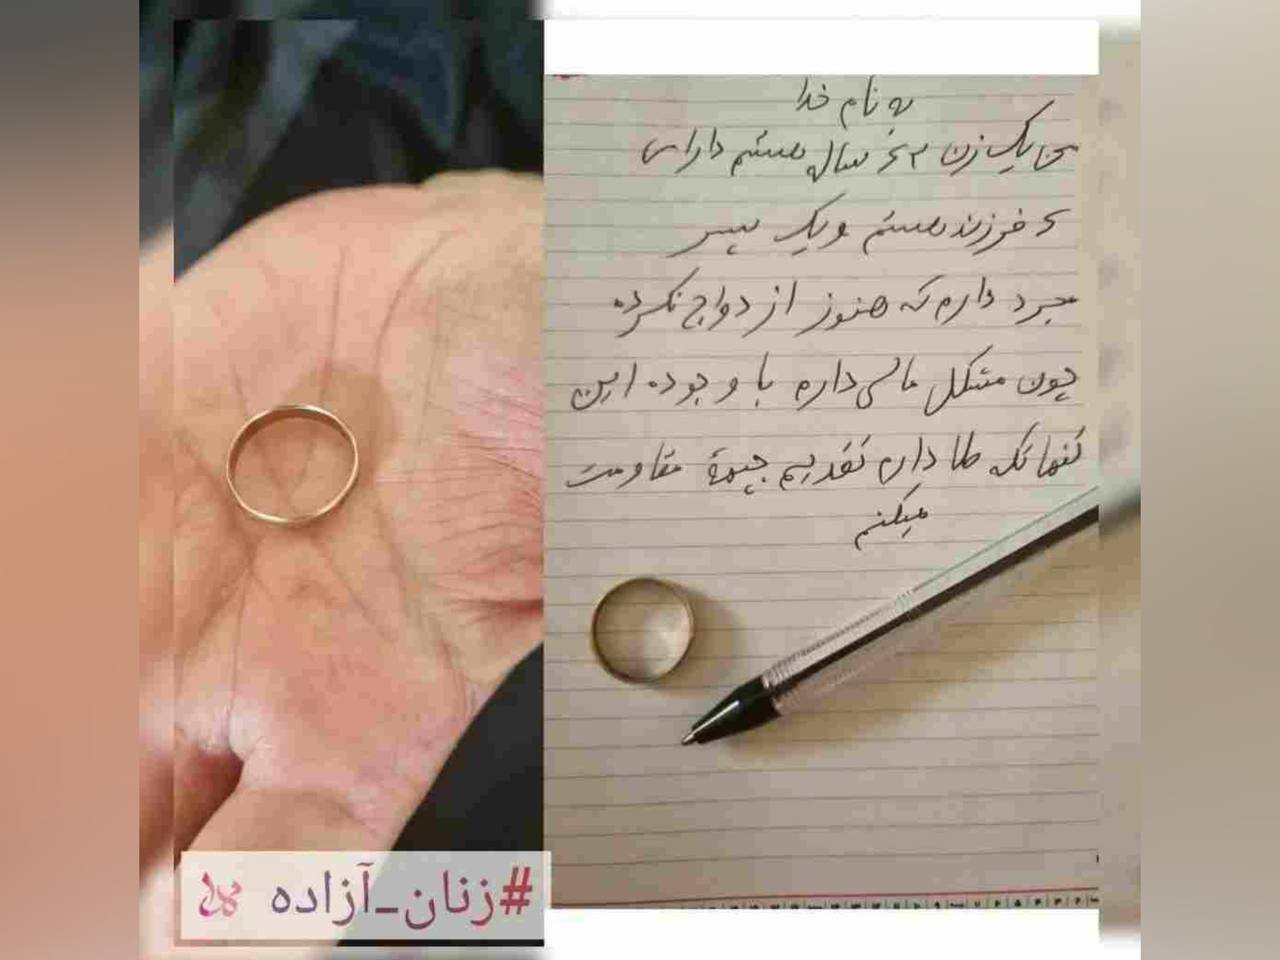 به نام خدا
من یک زن ۶۴ ساله هستم دارای
۶ فرزند هستم و یک پسر
مجرد دارم که هنوز ازدواج نکرده
چون مشکل مالی داره با وجوده این
تنها تکه طلا دارم تقدیم جبههٔ مقاومت
میکنم
#زنان_آزاده